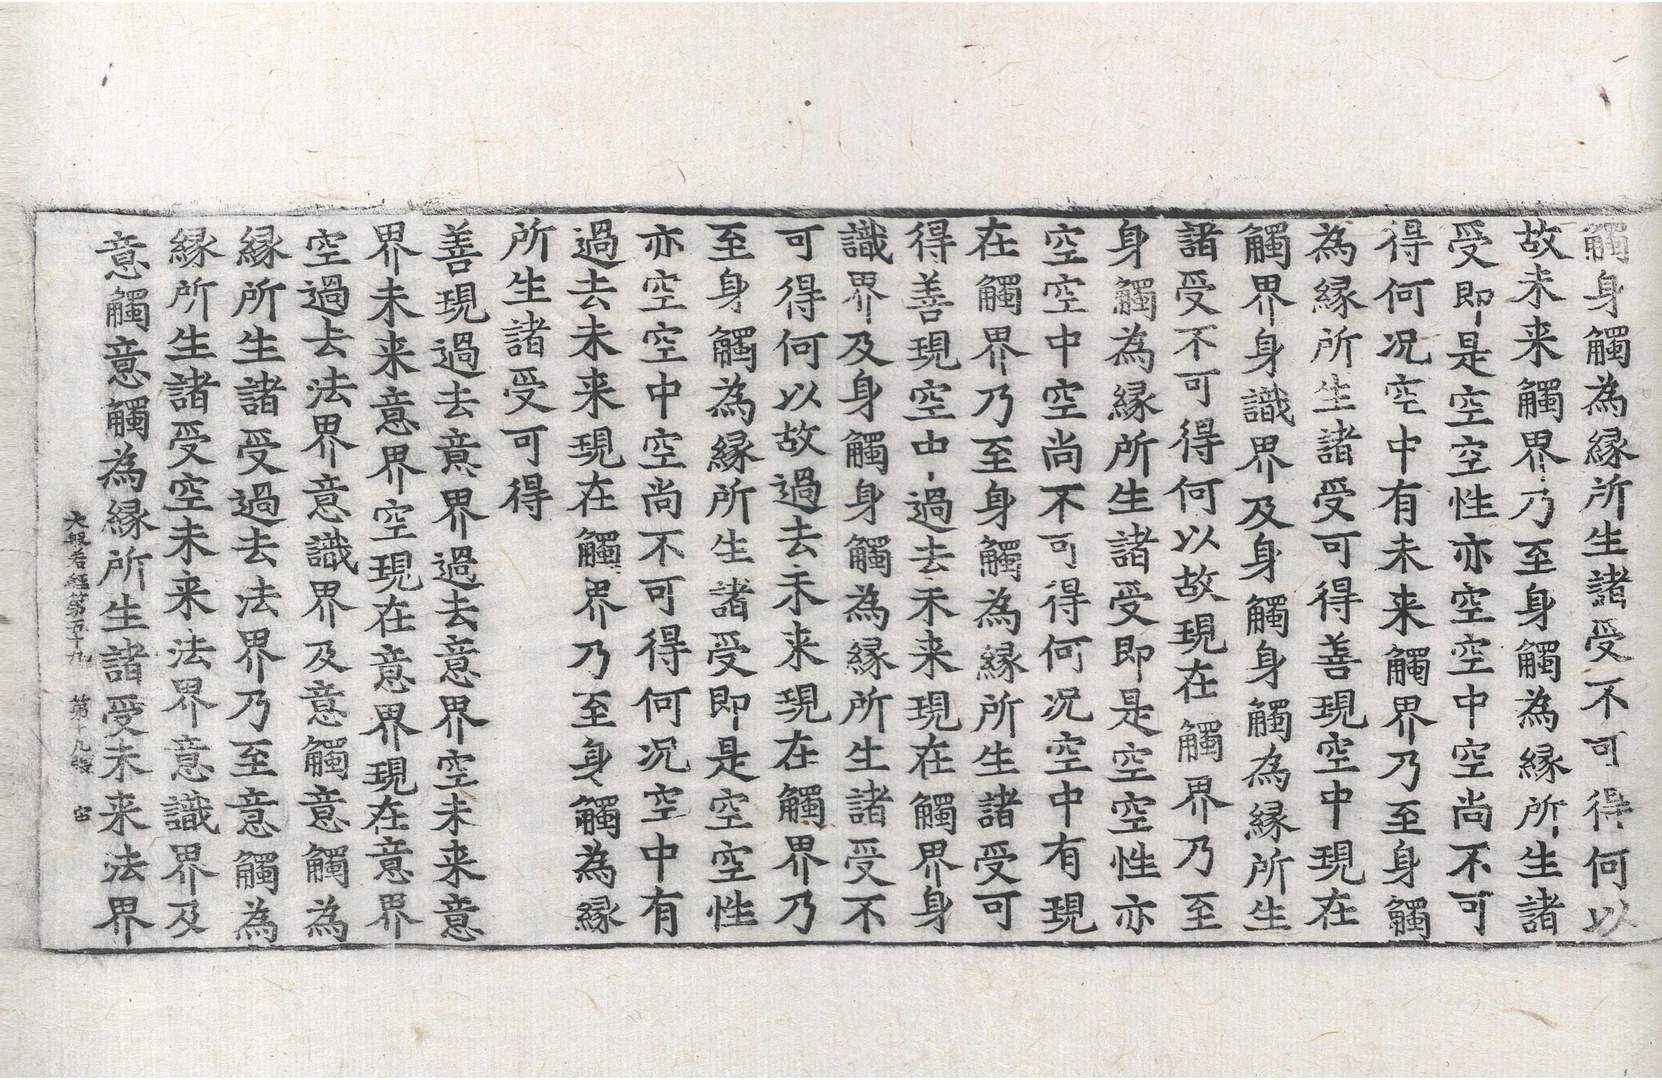 觸身觸為縁所生諸受不可得何以
故未来觸界乃至身觸為縁所生諸
受即是空空性亦空空中空尚不可
得何况空中有未来觸界乃至身觸
為縁所生諸受可得善現空中現在
觸界身識界及身觸身觸為縁所生
諸受不可得何以故現在觸界乃至
身觸為縁所生諸受即是空空性亦
空空中空尚不可得何况空中有現
在觸界乃至身觸為縁所生諸受可
得善現空中過去未来現在觸界身
識界及身觸身觸為縁所生諸受不
可得何以故過去未来現在觸界乃
至身觸為縁所生諸受即是空空性
亦空空中空尚不可得何况空中有
過去未来現在觸界乃至身觸為縁
所生諸受可得
善現過去意界過去意界空未来意
界未来意界空現在意界現在意界
空過去法界意識界及意觸意觸為
縁所生諸受過去法界乃至意觸為
縁所生諸受空未来法界意識界及
意觸意觸為縁所生諸受未来法界
大般若経第五十九 第十九張